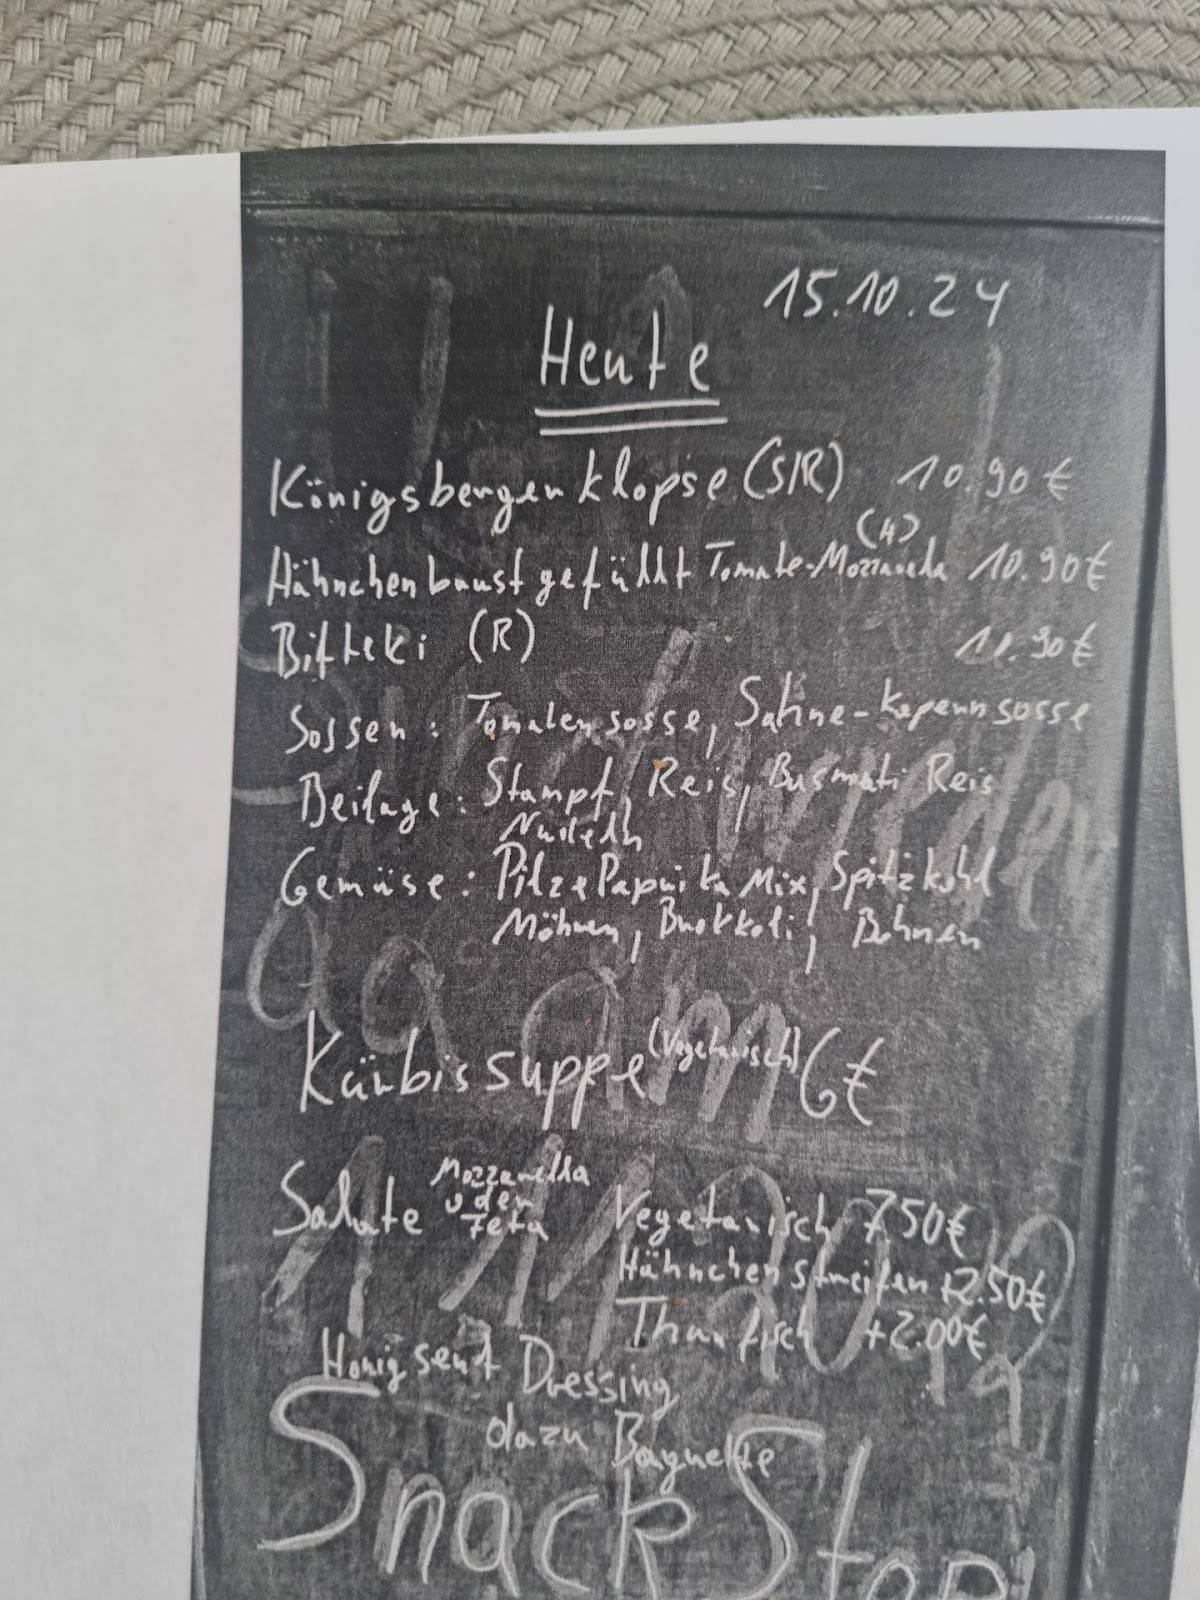 15.10.24
Heute
Königsberger Klopse (S/R) 10.90€
(H)
Hähnchenbrust gefüllt Tomate-Mozzarella 10.90€
Bifteki (R) 11.90€
Sossen: Tomatensosse, Sahne-Kapernsosse
Beilage: Stampf, Reis, Basmati Reis
Nudeln
Gemüse: Pilze Paprika Mix, Spitzkohl
Möhren, Brokkoli, Bohnen
Kürbissuppe (Vegetarisch) 6€
Salate Mozzarella
oder
Feta Vegetarisch 7.50€
Hähnchenstreifen +2.50€
Thunfisch +2.00€
Honigsenf Dressing
dazu Baguette
SnackStop